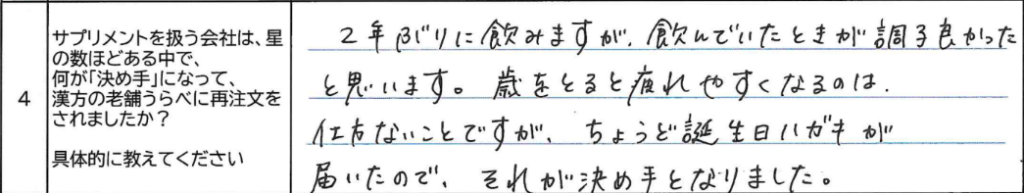 4
サプリメントを扱う会社は、星
の数ほどある中で、
何が「決め手」になって、
漢方の老舗うらべに再注文を
されましたか？
具体的に教えてください
2年ぶりに飲みますが、飲んでいたときが調子良かった
と思います。歳をとると疲れやすくなるのは、
仕方ないことですが、ちょうど誕生日ハガキが
届いたので、それが決め手となりました。